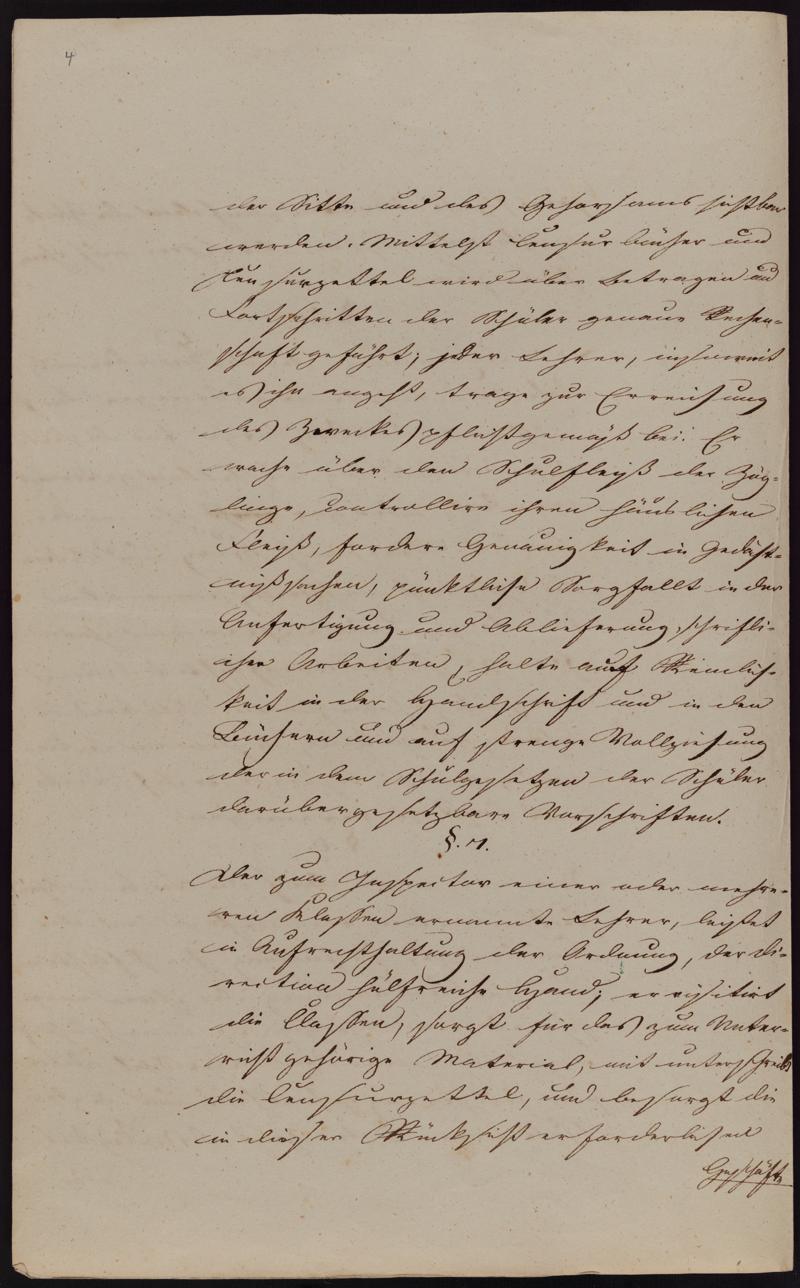 4
der Sitte und des Gehorsams sichtbar
werden. Mittelst Censur bücher und
Censurzettel wird über Betragen und
Fortschritten der Schüler genaue Rechen-
schaft geführt; jeder Lehrer, insoweit
es ihn angeht, trage zur Erreichung
des Zweckes pflichtgemäß bei. Er
wache über den Schulfleiß der Zög-
linge, controllire ihren häuslichen
Fleiß, fordere Genauigkeit in Gedächt-
nißsachen, pünktliche Sorgfallt in der
Anfertigung und Ablieferung schriftli-
cher Arbeiten, halte auf Reinlich-
keit in der Handschrift und in den
Büchern und auf strenge Vollziehung
der in dem Schulgesetzen der Schüler
darüber gesetzbare Vorschriften.
§. 7.
Der zum Inspector einer oder mehre-
ren Klassen ernannte Lehrer, leistet
in Aufrechthaltung der Ordnung, der Di-
rection hülfreiche Hand; er visitirt
die Classen, sorgt für das zum Unter-
richt gehörige Material, mit unterschreibt
die Censurzettel, und besorgt die
in dieser Rücksicht erforderlichen
Geschäfte